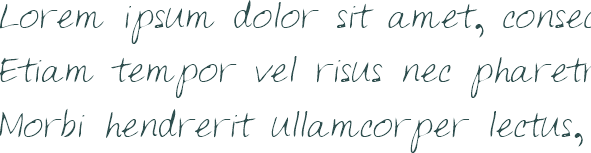 Lorem ipsum dolor sit amet, consec
Etiam tempor vel risus nec pharetr
Morbi hendrerit ullamcorper lectus,